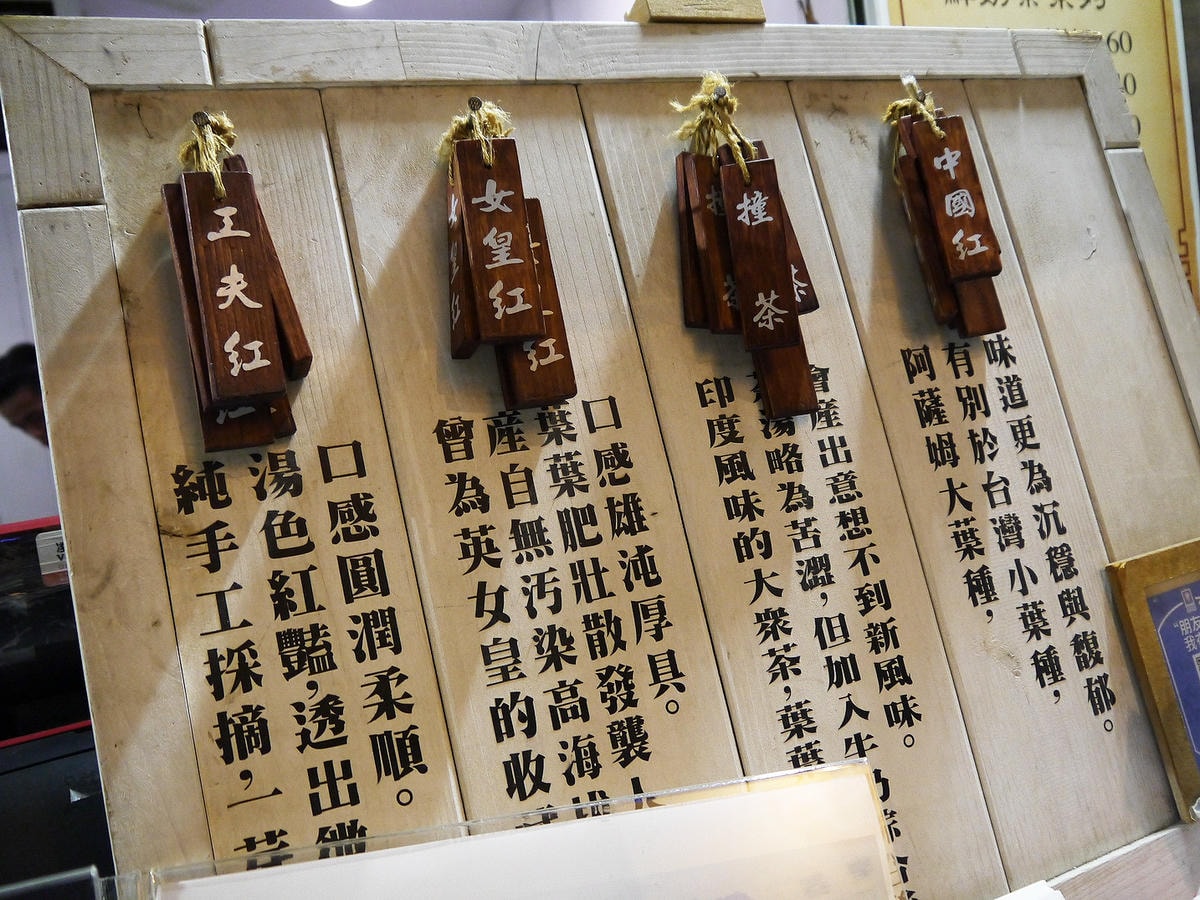 工夫紅
純手工採摘,一芽
湯色紅豔,透出微
口感圓潤柔順。
女皇紅
女皇紅
紅
曾為英女皇的收
産自無污染高海
葉葉肥壯散發襲人
口感雄沌厚具。
撞茶
印度風味的大眾茶,葉葉
湯略為苦澀,但加入牛
會産出意想不到新風味。
中國紅
阿薩姆大葉種,
有別於台灣小葉種,
味道更為沉穩與馥郁。
60